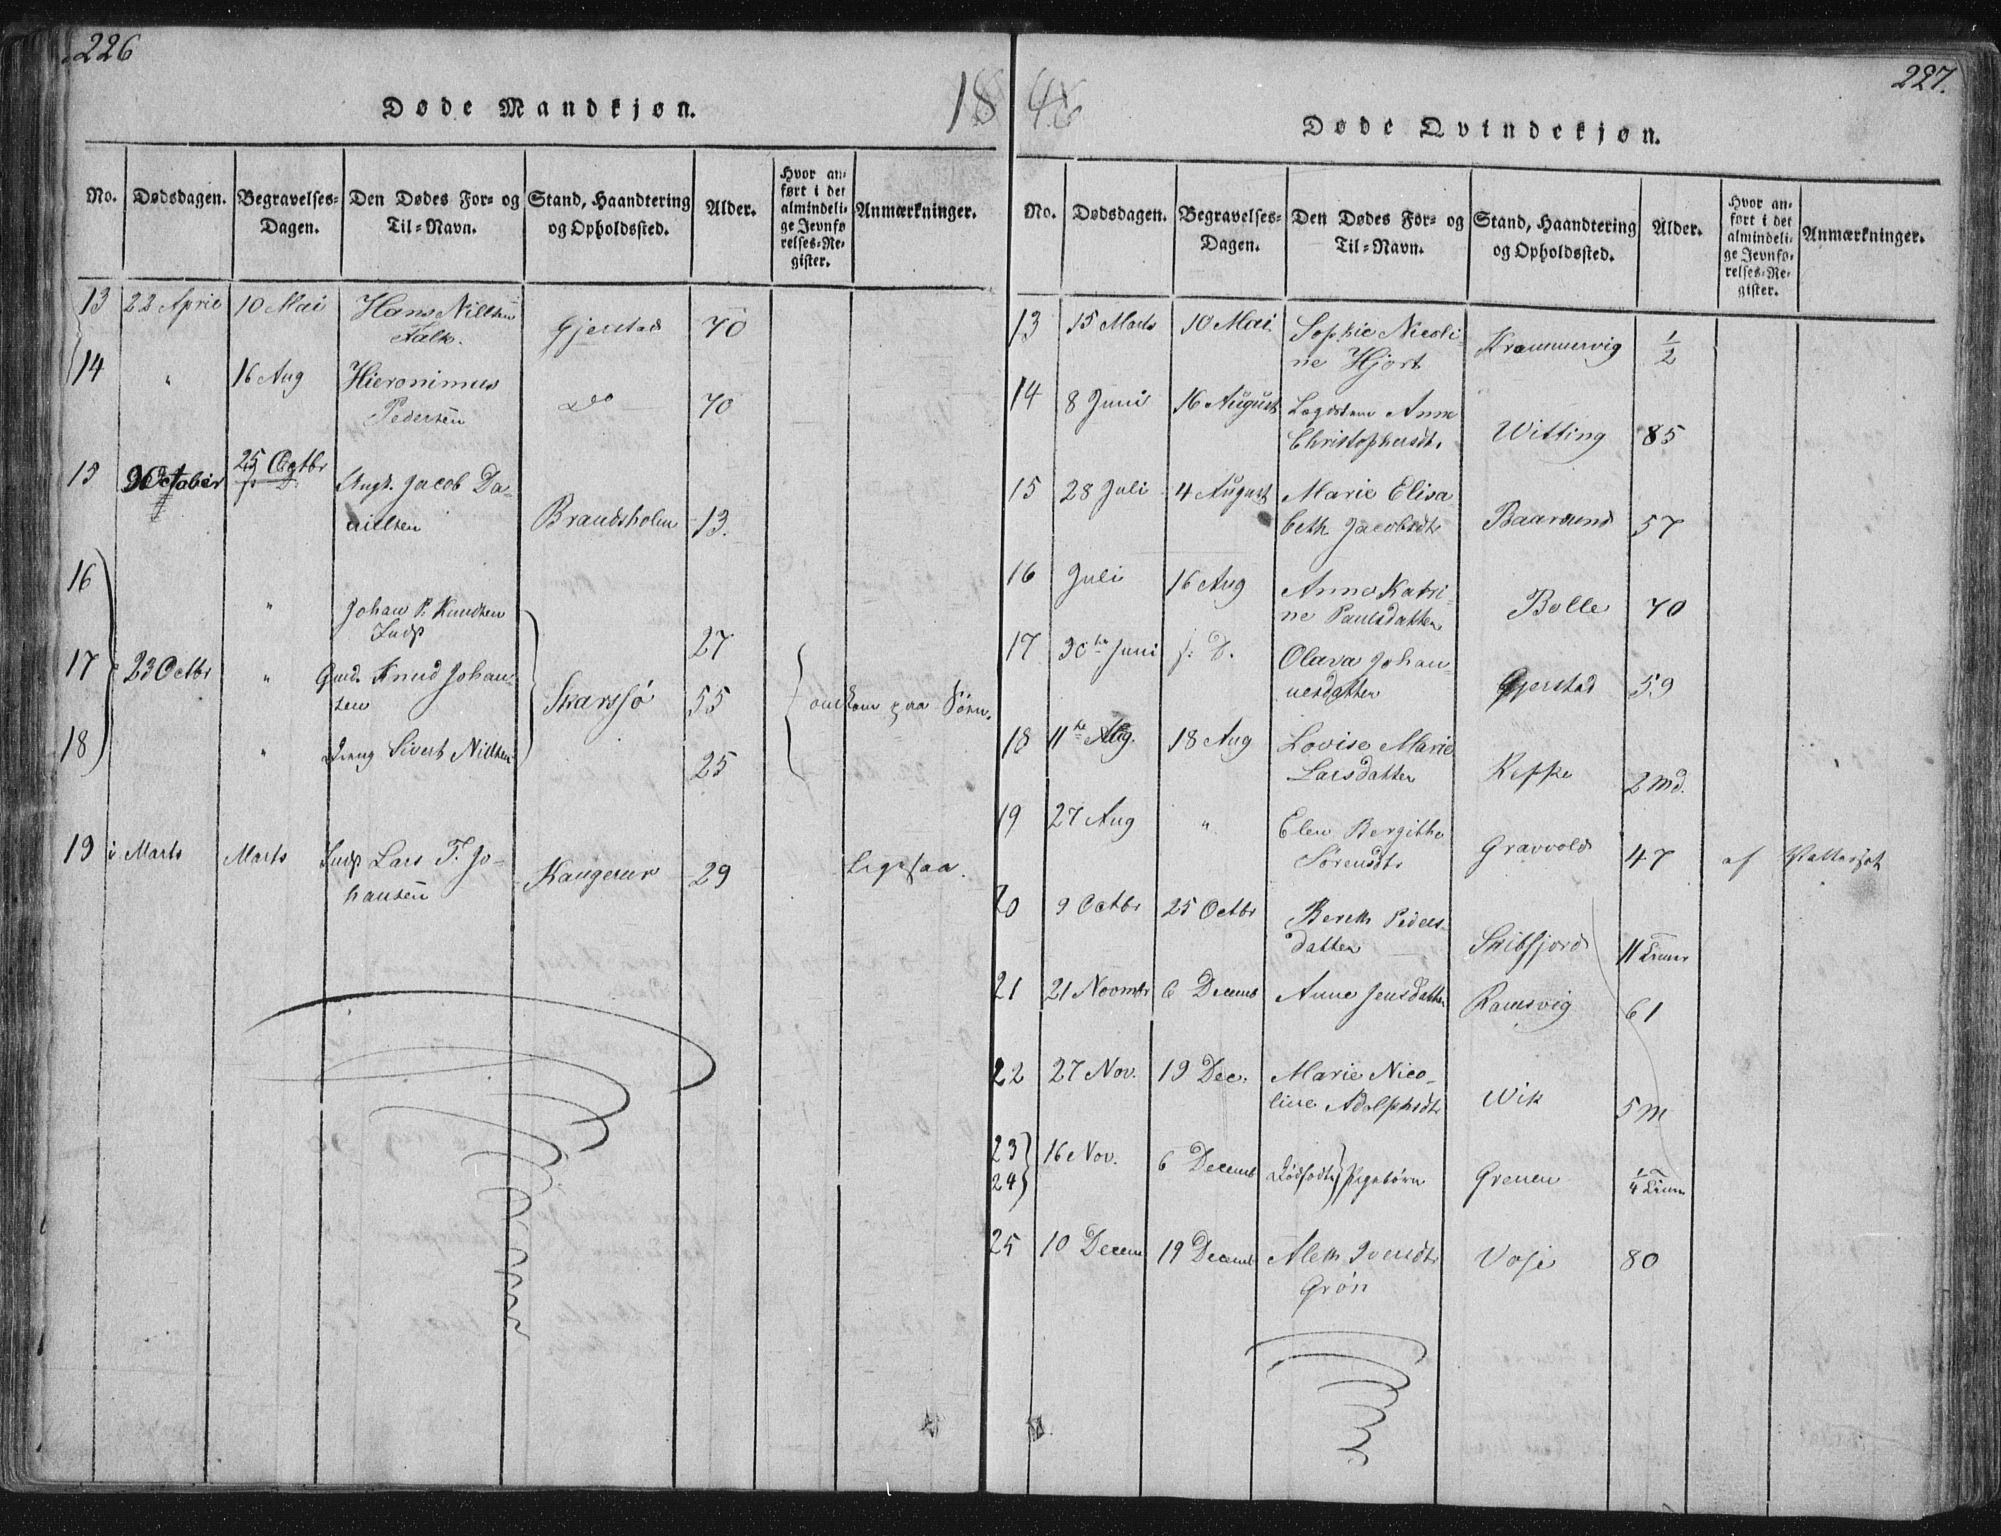 226
Døde Mandkjøn.
18
No. Dødsdagen. Begravelses-Dagen. Den Dødes For- og Til-Navn. Stand, Haandtering og Opholdssted. Alder. Hvor anført i det almindelige Jevnførelses-Register. Anmærkninger.
13 22 April 10 Mai Hans Nilsen
Falk. Gjerstad 70
14 " 16 Aug Hieronimus
Pedersen do 70
15 October 25 Octbr Ungk. Jacob Da-
nilsen Brandsholm 13.
16 " Johan P. Knudsen
Inds 27
17 23 Octbr " Gmd. Knud Johan-
sen Skarsjö 55 omkom paa Söen.
18 " Dreng Sivert Nilsen 25
19 i Marts Marts Inds Lars T. Jo-
hansen 29 Ligesaa.
46
227.
Døde Qvindekjøn.
No. Dødsdagen. Begravelses-Dagen. Den Dødes For- og Til-Navn. Stand, Haandtering og Opholdssted. Alder. Hvor anført i det almindelige Jevnførelses-Register. Anmærkninger.
13 15 Marts 10 Mai Sophie Nicoli-
ne Hjort Krammervig 1/2
14 8 Juni 16 August Lægdslem Anne
Christophersdt. Witting 85
15 28 Juli 4 August Marie Elisa
beth Jacobsdtr Baarsund 57
16 Juli 16 Aug Anne Katri-
ne Paulsdatter Bolle 70
17 30te Juni f. D. Olava Johan-
nesdatter Gjerstad 59
18 11te Aug. 18 Aug Lovise Marie
Larsdatter Keppe 2 Md.
19 27 Aug " Elen Bergithe
Sørensdtr Gravvold 47 af
20 9 Octbr 25 Octbr Bereth Peders-
datter Skibfjord 11 Timer
21 21 Novmbr 6 Decemb Anne Jensdatter Ramsvig 61
22 27 Nov. 19 Dec. Marie Nico-
line Adolphsdtr Wik 5 M
23
24 16 Nov. 6 Decemb Dødfødte Pigebørn Grenen 1/4 Time
25 10 Decem 19 Decemb Aleth Iversdtr
Grön Voje 80